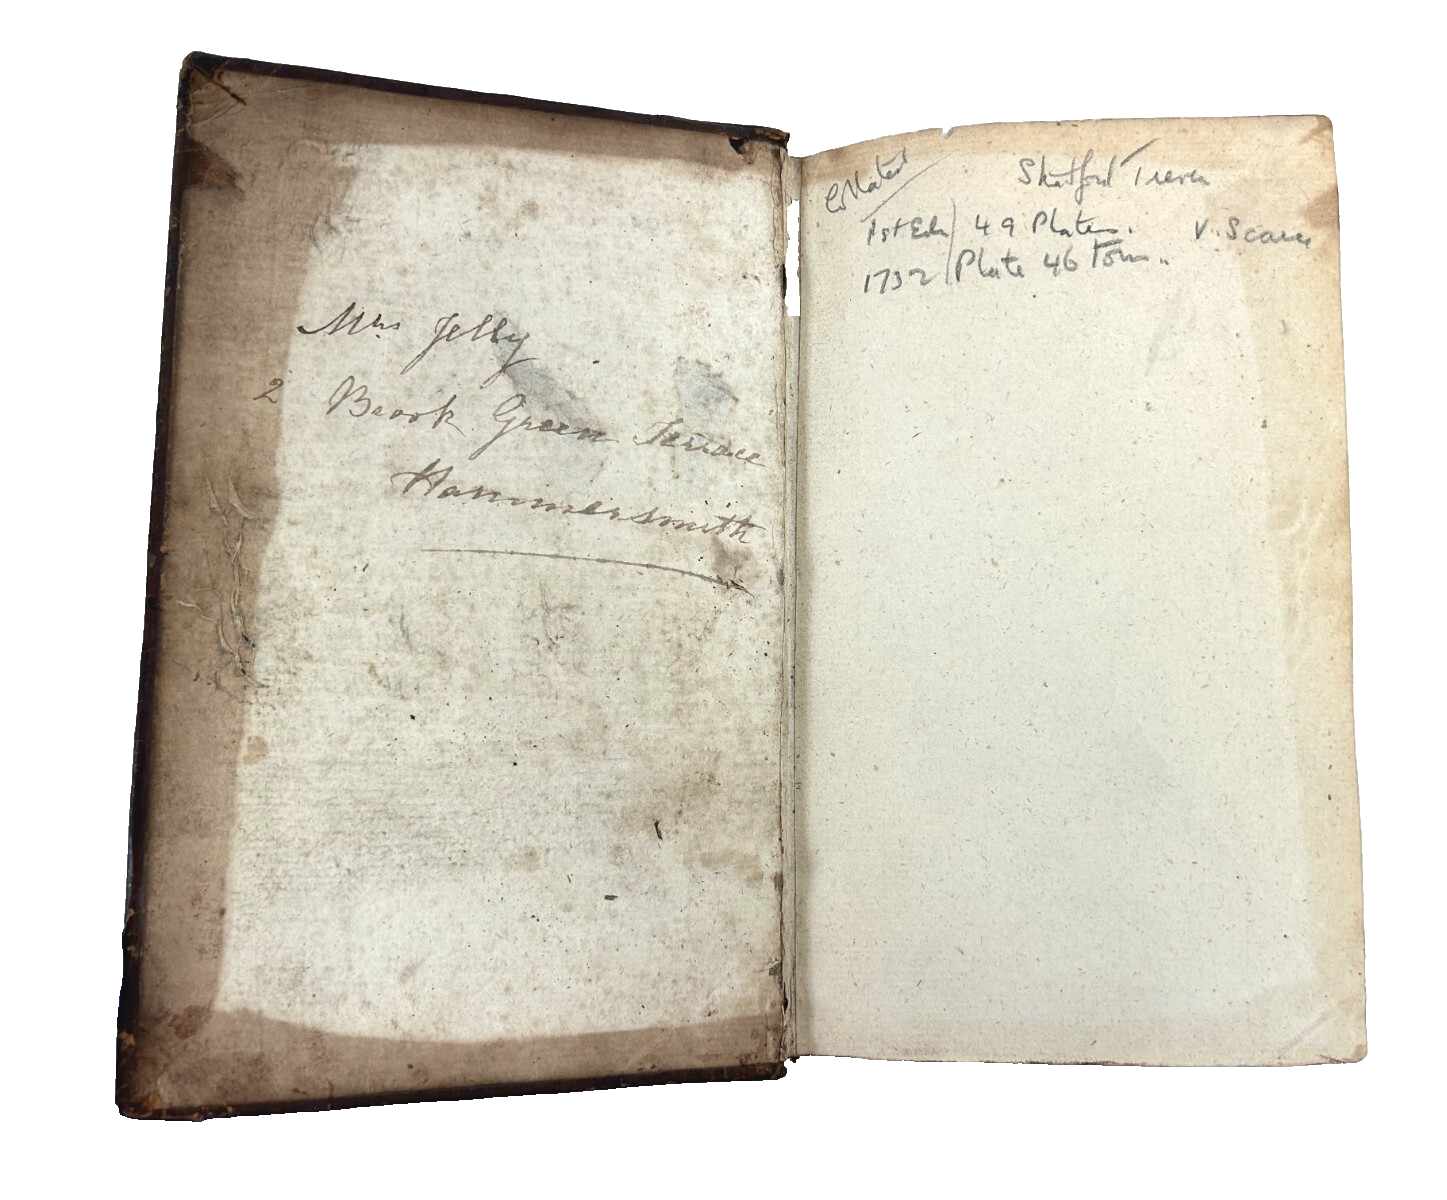 Mrs Jelly
2 Brook Green Terrace
Hammersmith
Collated
1st Edn 49 Plates. V. Scarce
1732 Plate 46 Torn.